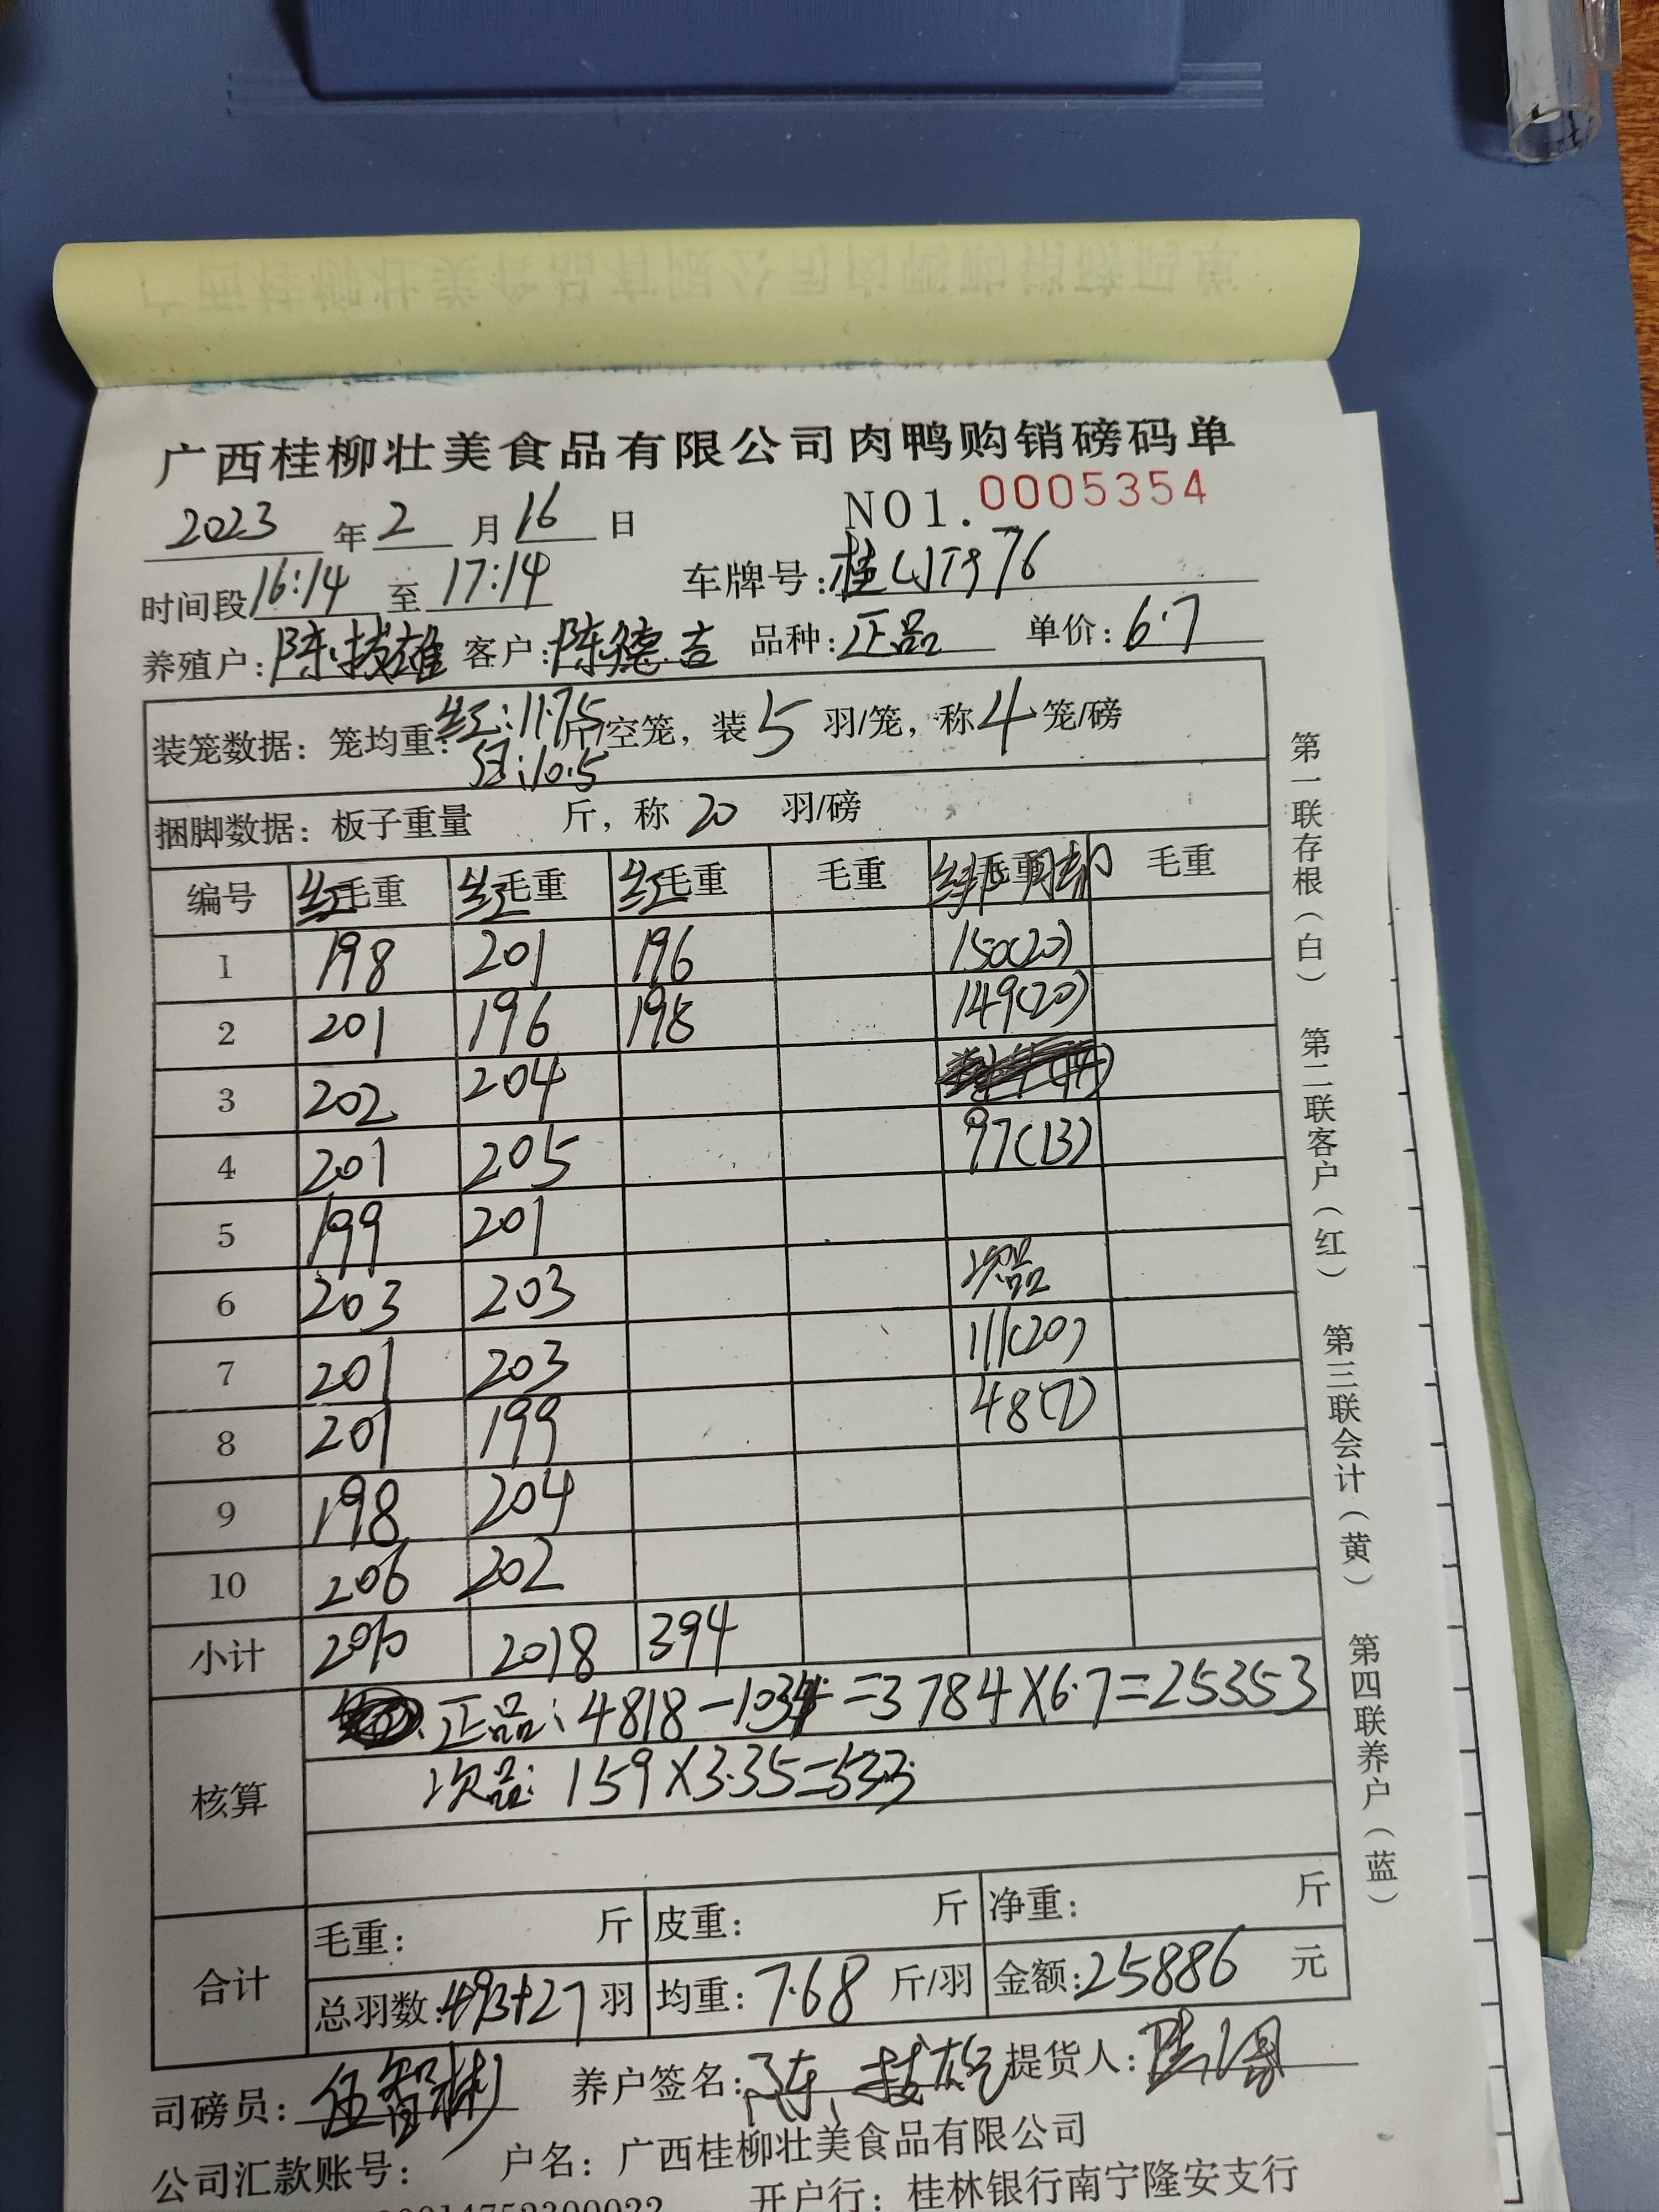 广西桂柳壮美食品有限公司肉鸭购销磅码单
2023 年 2 月 16 日 NO1. 0005354
时间段 16:14 至 17:14 车牌号:桂
养殖户: 陈技雄 客户: 陈德吉 品种: 正品 单价: 6.7
装笼数据: 笼均重: 红:11.75 斤/空笼, 装 5 羽/笼, 称 4 笼/磅
:10.5
捆脚数据: 板子重量 斤, 称 20 羽/磅
编号 红毛重 红毛重 红毛重 毛重 毛重 毛重
1 198 201 196 150(20)
2 201 196 198 149(20)
3 202 204
4 201 205 97(13)
5 199 201
6 203 203 次品
7 201 203 111(20)
8 201 199 48(7)
9 198 204
10 206 202
小计 2010 2018 394
核算 正品: 4818-1034=3784×6.7=25353
次品: 159×3.35=533
合计 毛重: 斤 皮重: 斤 净重: 斤
总羽数: 493+27 羽 均重: 7.68 斤/羽 金额: 25886 元
司磅员: 伍智彬 养户签名: 陈技雄 提货人:
公司汇款账号: 户名: 广西桂柳壮美食品有限公司
开户行: 桂林银行南宁隆安支行
第一联存根(白) 第二联客户(红) 第三联会计(黄) 第四联养户(蓝)